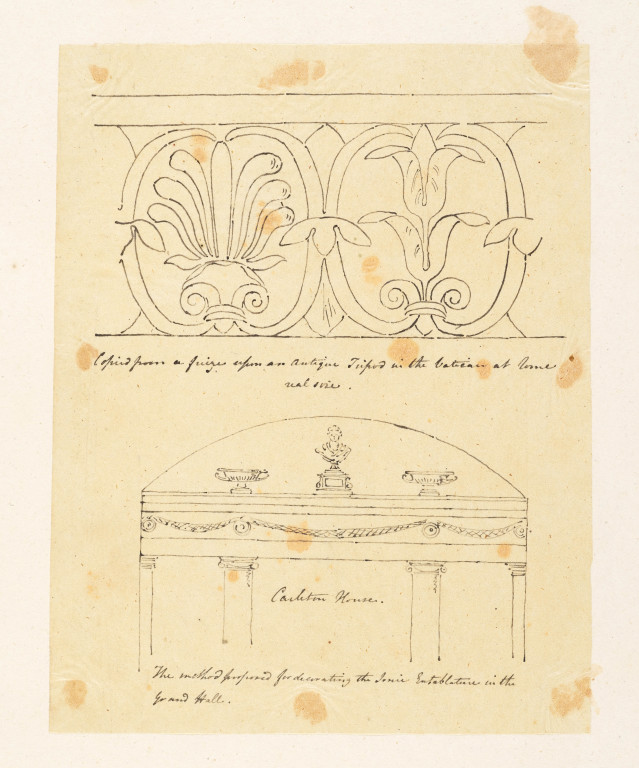 Copied from a frize upon an Antique Tripod in the Vatican at Rome
real size.
Carleton House.
The method proposed for decorating the Ionic Entablature in the
Grand Hall.